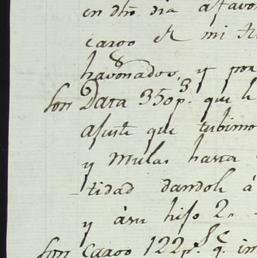 en dho dia a favo
cargo de mi
havonados, y por
Son Data 350 p.s que le
ajuste que tubimo
y Mulas hasta
tidad dandole á
y à su hijo 2,,
Son Cargo 122 p.s q. im